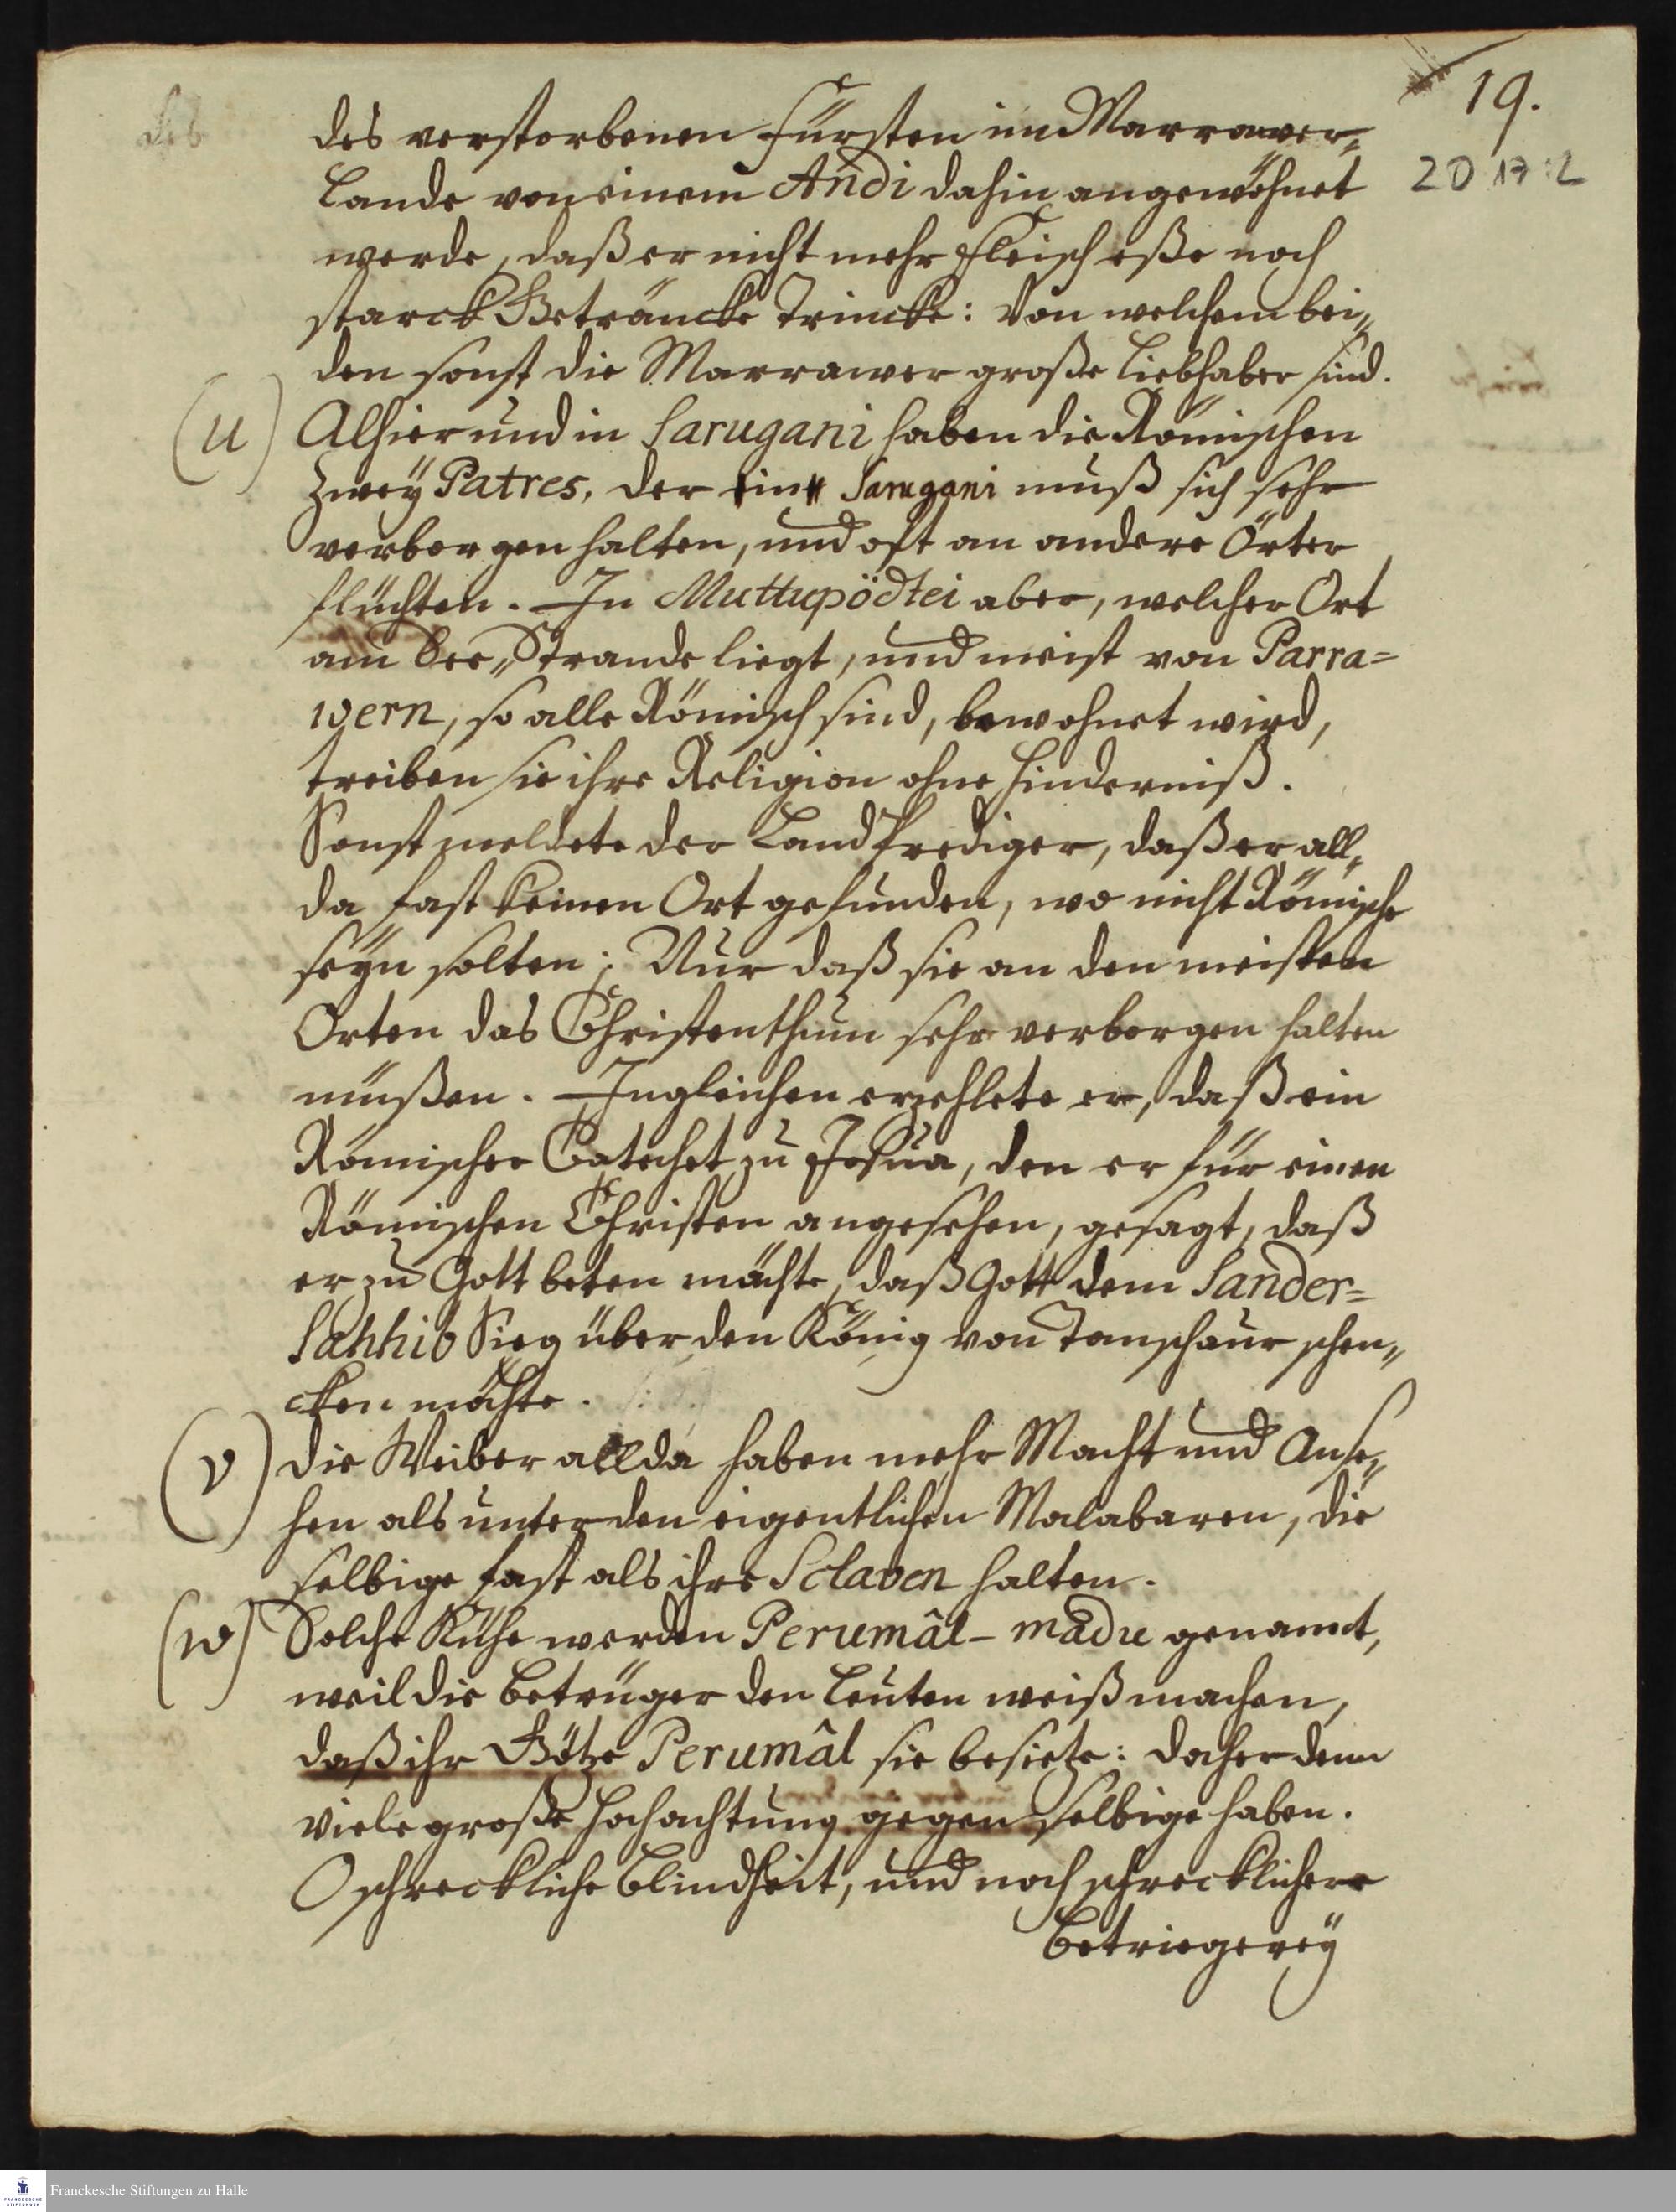 19.
20 17 2
des verstorbenen Fürsten im Marrawer„
Lande von einem Andi dahin angewöhnet
werde, daß er nicht mehr Fleisch eße noch
starck Geträncke trincke: Von welchem bei„
den sonst die Marrawer große Liebhaber sind.
(u) Alhier und in Sarugani haben die Römischen
zwey Patres, der in Sarugani muß sich sehr
verborgen halten, und oft an andere Örter
flüchten. In Muttupödtei aber, welcher Ort
am See„Strande liegt, und meist von Parra=
wern, so alle Römisch sind, bewohnet wird,
treiben sie ihre Religion ohne Hinderniß.
Sonst meldete der Landprediger, daß er all„
da fast keinen Ort gefunden, wo nicht Römische
seyn solten; Nur daß sie an den meisten
Orten das Christenthum sehr verborgen halten
müßen. Ingleichen erzehlete er, daß ein
Römischer Catechet zu Josua, den er für einen
Römischen Christen angesehen, gesagt, daß
er zu Gott beten möchte, daß Gott dem Sander=
Sahhib Sieg über den König von Tanschaur schen„
cken möchte.
(v) Die Weiber allda haben mehr Macht und Anse„
hen als unter den eigentlichen Malabaren, die
selbige fast als ihre Sclaven halten.
(w) Solche Kühe werden Perumâl-mâdu genannt,
weil die Betrüger den Leuten weiß machen,
daß ihr Götze Perumâl sie besietze: Daher denn
viele große Hochachtung gegen selbige haben.
O schreckliche Blindheit, und noch schrecklichere
Betriegerey
Franckesche Stiftungen zu Halle